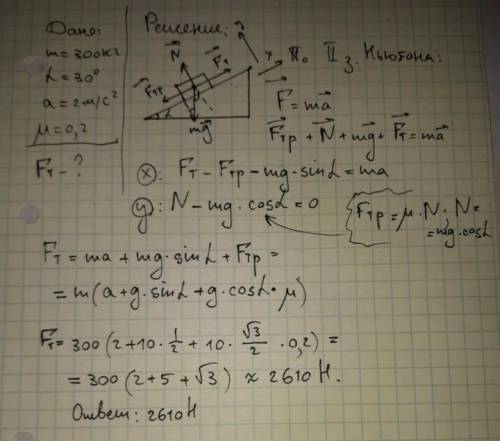 Дано:
m = 300кг
α = 30°
a = 2м/с²
μ = 0,2
Fт - ?
Решение:
y
x
N
Fт
Fтр
mg
По II з. Ньютона:
F = ma
Fтр + N + mg + Fт = ma
(x): Fт - Fтр - mg·sinα = ma
(y): N - mg·cosα = 0
Fтр = μ·N · N =
= mg·cosα
Fт = ma + mg·sinα + Fтр =
= m(a + g·sinα + g·cosα·μ)
Fт = 300 (2 + 10 · 1/2 + 10 · √3/2 · 0,2) =
= 300 (2 + 5 + √3) ≈ 2610 Н.
Ответ: 2610 Н